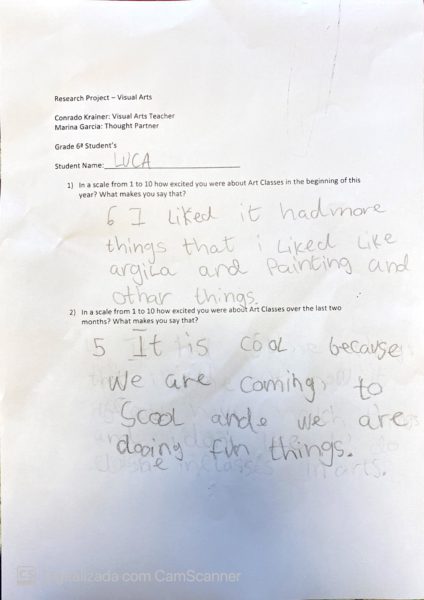 Research Project – Visual Arts
Conrado Krainer: Visual Arts Teacher
Marina Garcia: Thought Partner
Grade 6º Student's
Student Name: LUCA
1) In a scale from 1 to 10 how excited you were about Art Classes in the beginning of this
year? What makes you say that?
6 I liked it had more
things that i liked like
argila and Painting and
othar things.
2) In a scale from 1 to 10 how excited you were about Art Classes over the last two
months? What makes you say that?
5 It is cool because
we are coming, to
Scool ande we are
dooing fun things.
in classes in arts.
CS Digitalizada com CamScanner